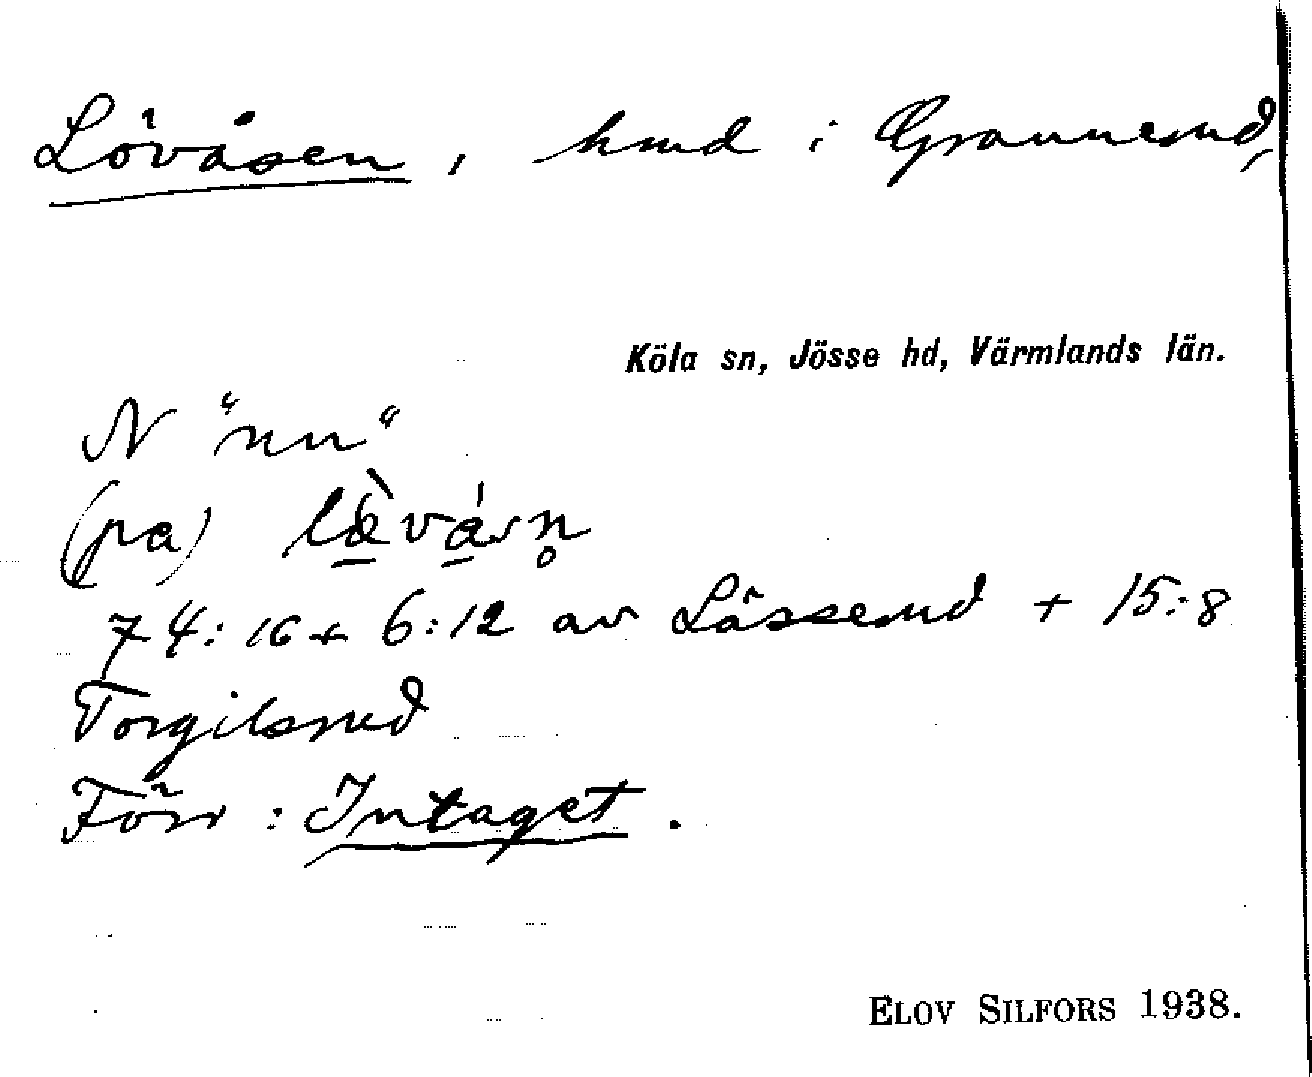 Lövåsen, hmd i Grannerud,
Köla sn, Jösse hd, Värmlands län.
N "nu"
(pa) læ̱̀vá̱sn̥
74:16 + 6:12 av Lässerud + 15:8
Torgilsrud
Förr: Intaget.
ELOV SILFORS 1938.